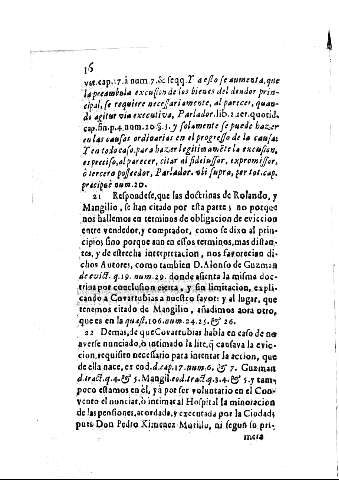 16
var. cap. 7. à num. 7. & seqq. Y a esto se aumenta, que
la preambula excusion de los bienes del deudor prin-
cipal, se requiere necessariamente, al parecer, quan-
do agitur via executiva, Parlador. lib. 2. rer. quotid.
cap. fin. p. 4. num. 20. §. 5. y solamente se puede hazer
en las causas ordinarias en el progresso de la causa:
Y en todo caso, para hazer legitimamēte la excusion,
es preciso, al parecer, citar al fideiussor, expromissor,
ò tercero posseedor, Parlador. ubi supra, per tot. cap.
præcipuè num. 20.
21 Respondese, que las doctrinas de Rolando, y
Mangilio, se han citado por esta parte; no porque
nos hallemos en terminos de obligacion de eviccion
entre vendedor, y comprador, como se dixo al prin-
cipio; sino porque aun en essos terminos, mas distan-
tes, y de estrecha interpretacion, nos favorecian di-
chos Autores, como tambien D. Alonso de Guzman
de evict. q. 19. num. 29. donde assienta la misma doc-
trina por conclusion cierta, y sin limitacion, expli-
cando à Covarrubias a nuestro favor: y al lugar, que
tenemos citado de Mangilio, añadimos aora otro,
que es en la quæst. 106. num. 24. 25. & 26.
22 Demas, de que Covarrubias habla en caso de no
averse nunciado, ò intimado la lite, q̄ causava la evic-
cion, requisito necessario para intentar la accion, que
de ella nace, ex eod. d. cap. 17. num. 6. & 7. Guzman
d. tract. q. 4. & 5. Mangil. eod. tract. q. 3. 4. & 5. y tam-
poco estamos en èl, yà por ser voluntario en el Con-
vento el nunciar, ò intimar al Hospital la minoracion
de las pensiones, acordada, y executada por la Ciudad;
pues Don Pedro Ximenez Murillo, ni segun su pri-
mera